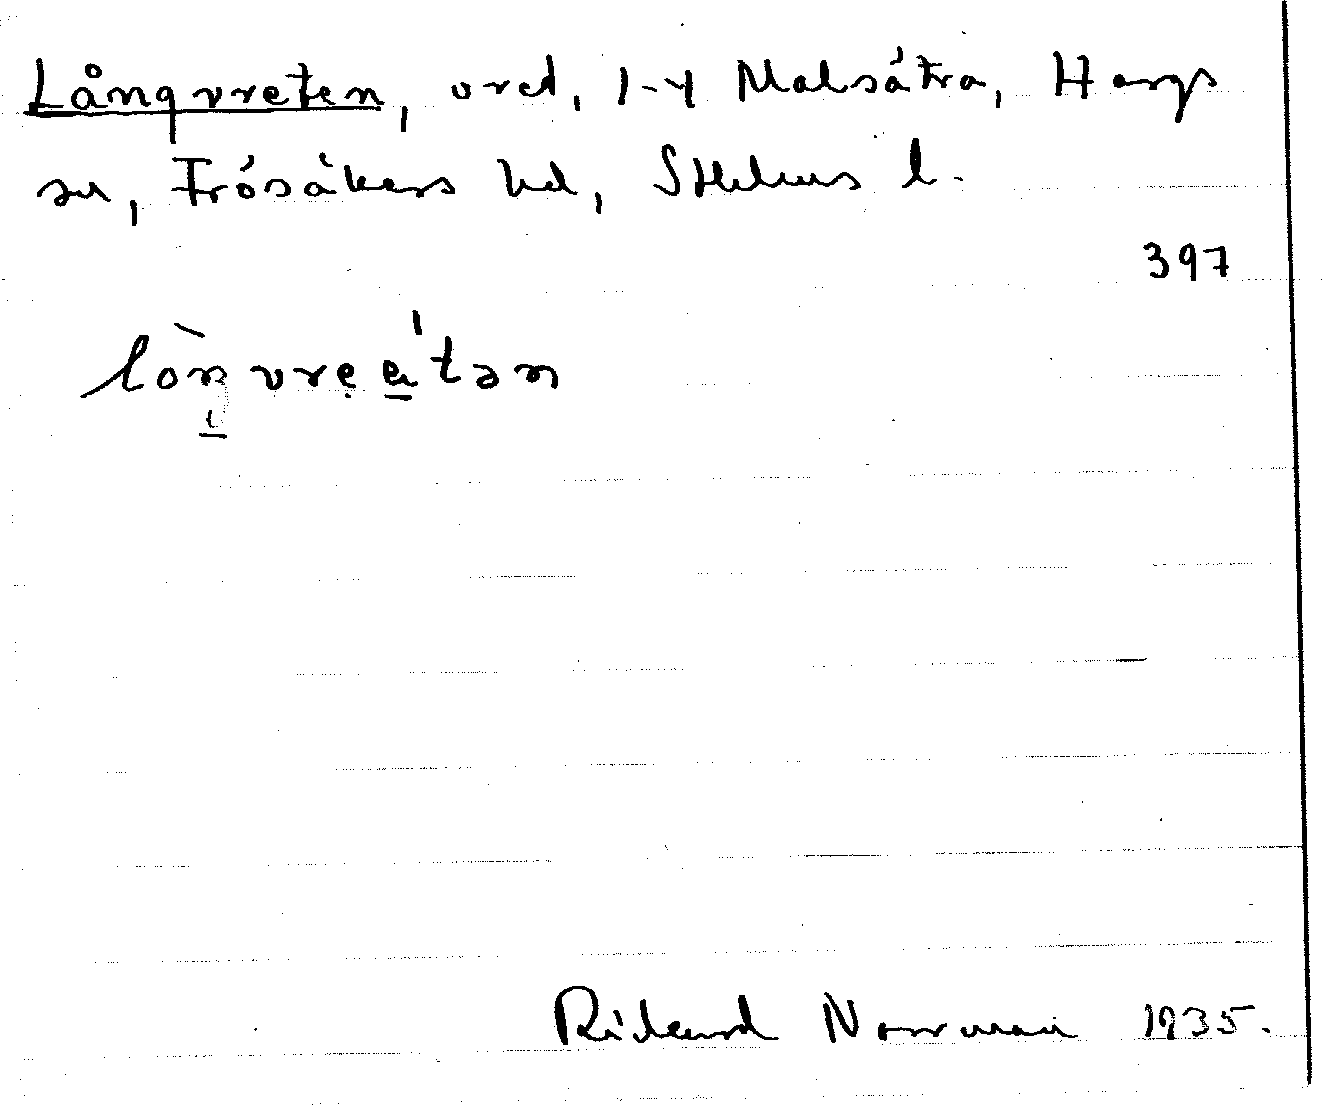 Långvreten, vret, 1-4 Malsätra, Hargs
sn, Frösåkers hd, Sthlms l.
397
lòŋvreeˈtən
Rickard Norrman 1935.